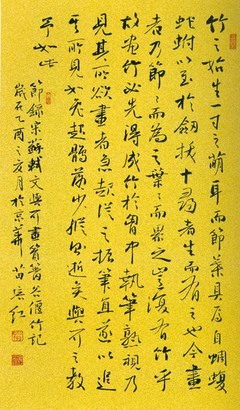 竹之始生一寸之萌耳而節葉具焉自蜩蝮
蛇蚹以至於劔拔十尋者生而有之也今畫
者乃節〻而為之葉〻而累之豈復有竹乎
故畫竹必先得成竹於胸中執筆熟視乃
見其所欲畫者急起從之振筆直遂以追
其所見如兔起鶻落少縱則逝矣與可之教
予如此
節錄宋蘇軾文與可畫篔簹谷偃竹記
歲在乙酉之亥月於京華苗紅